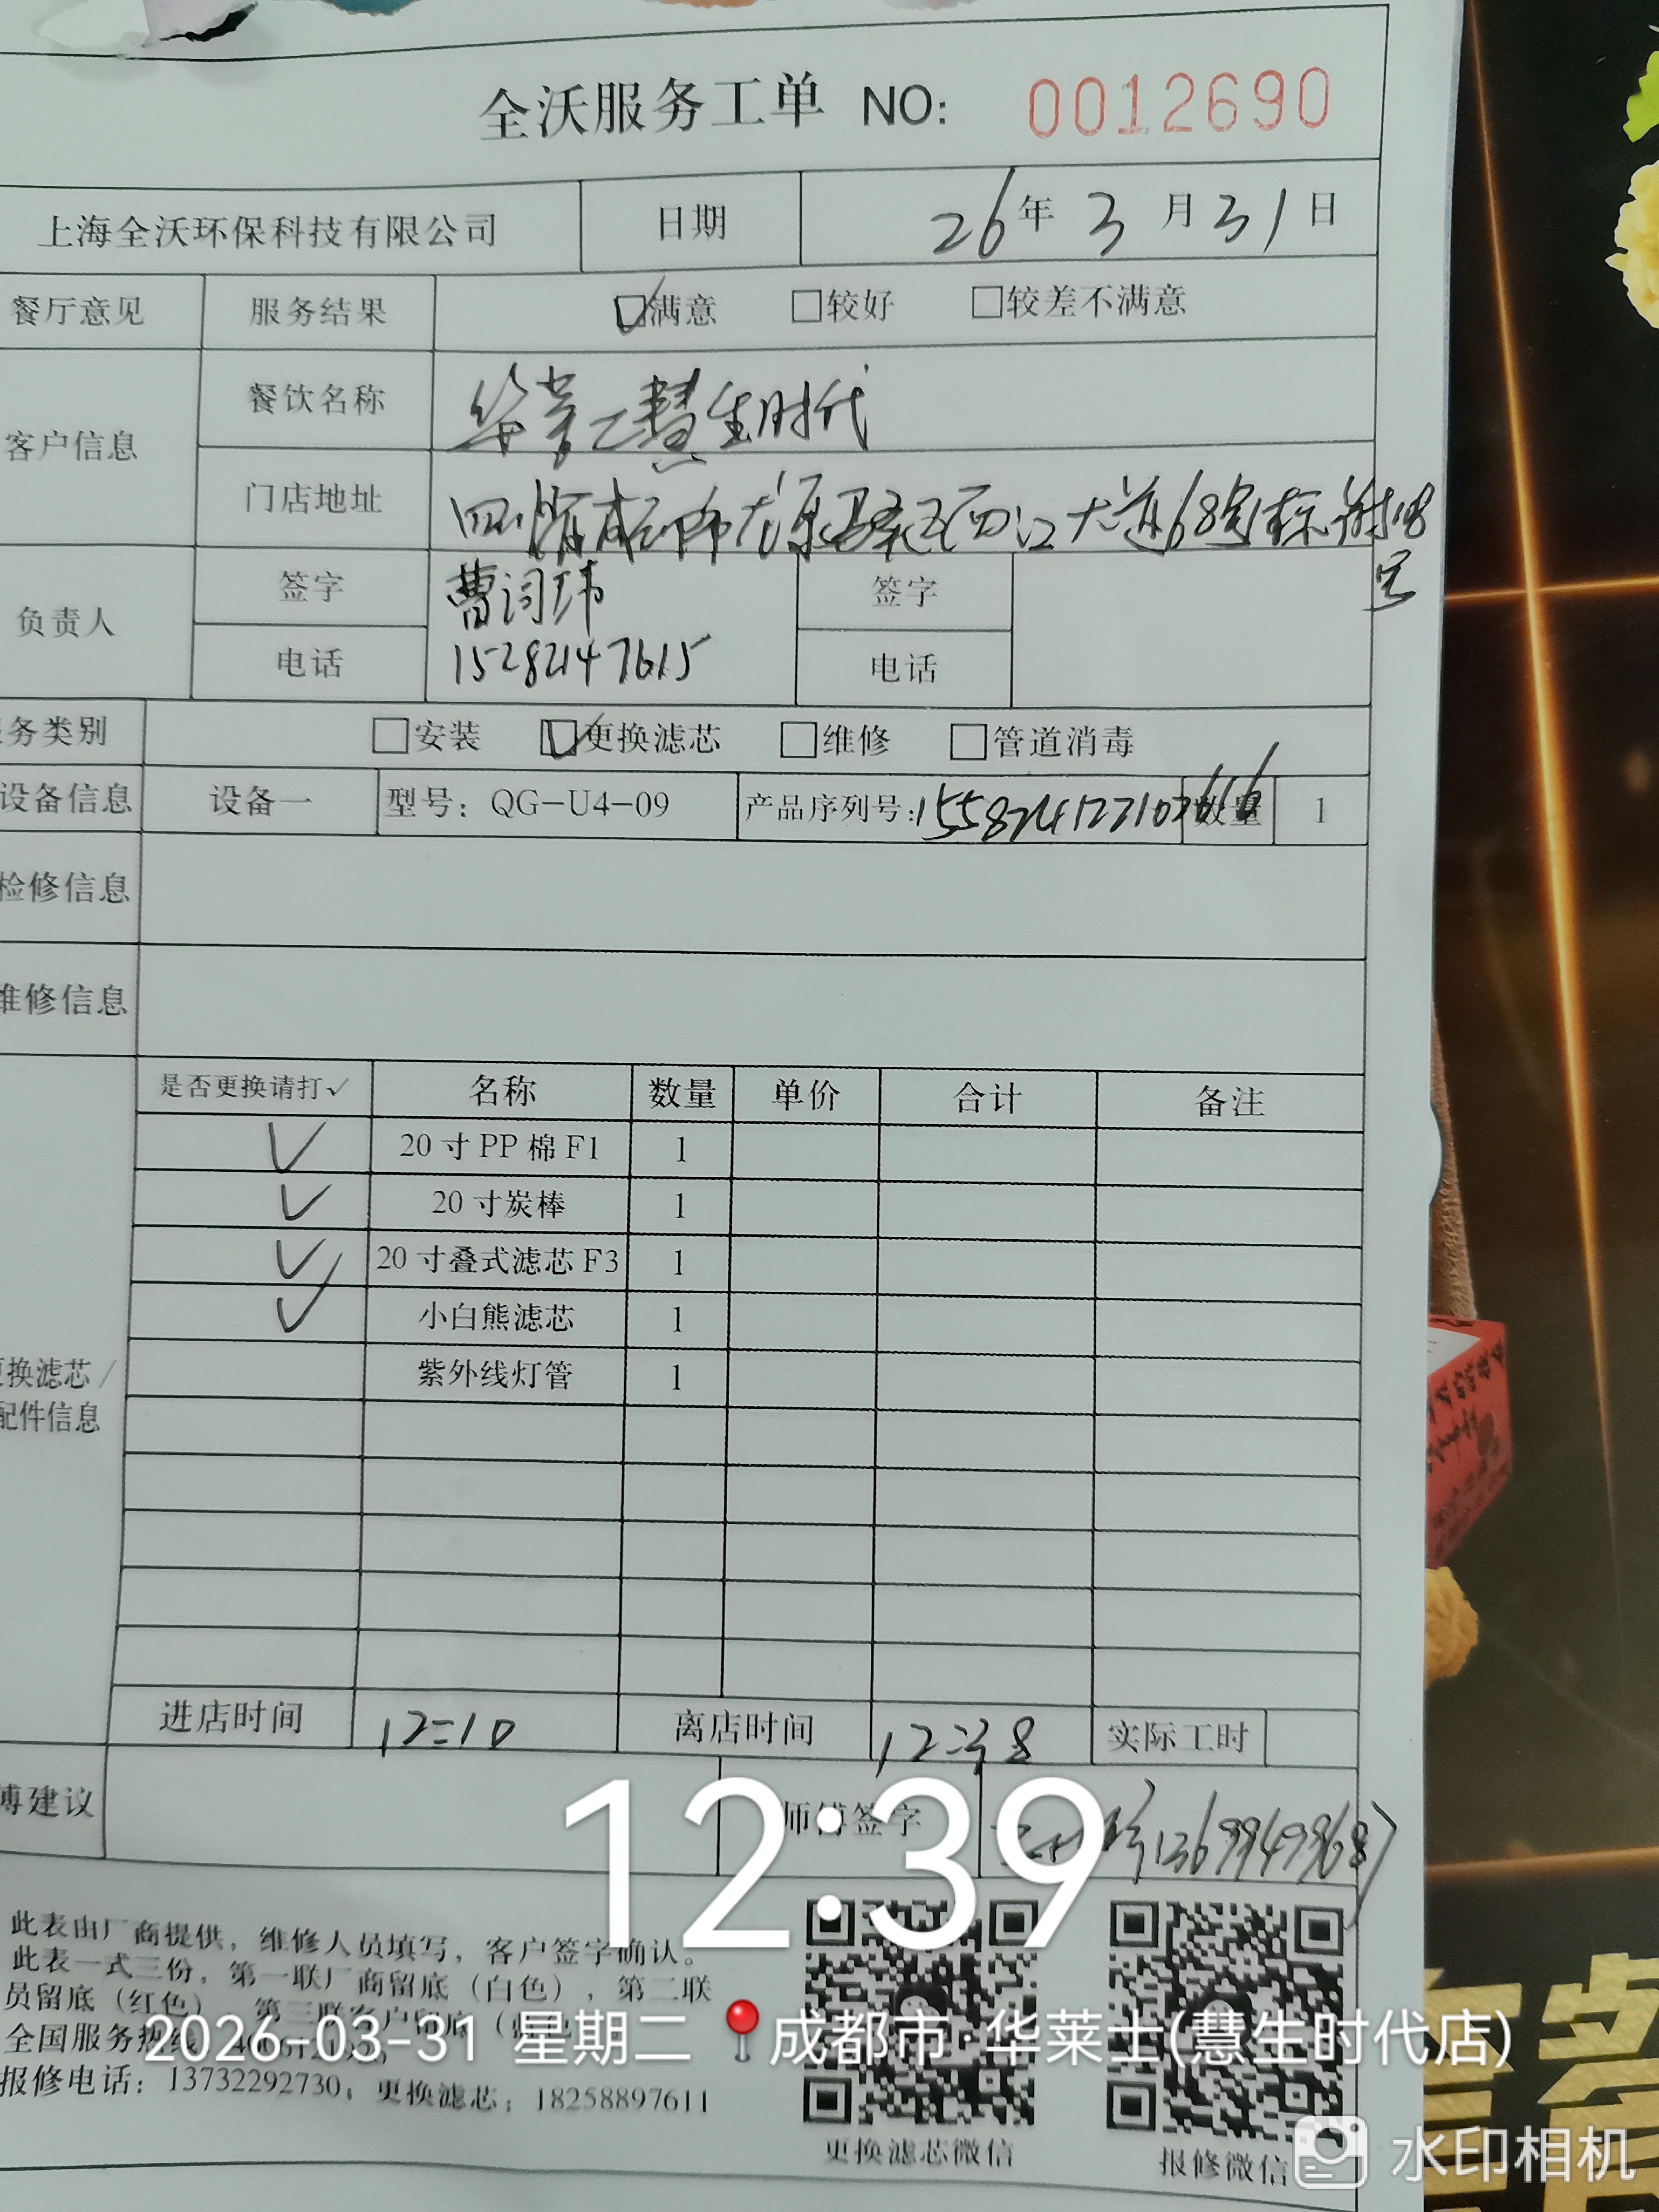 全沃服务工单 NO: 0012690
上海全沃环保科技有限公司 日期 26年3月31日
餐厅意见 服务结果 ☑满意 □较好 □较差不满意
客户信息 餐饮名称 华莱士慧生时代
门店地址 四川省成都市龙泉驿区西江大道68号1栋附18号
负责人 签字 曹词玮 签字
电话 15282147615 电话
务类别 □安装 ☑更换滤芯 □维修 □管道消毒
设备信息 设备一 型号：QG-U4-09 产品序列号： 数量 1
检修信息
维修信息
是否更换请打✓ 名称 数量 单价 合计 备注
✓ 20寸PP棉F1 1
✓ 20寸炭棒 1
✓ 20寸叠式滤芯F3 1
✓ 小白熊滤芯 1
紫外线灯管 1
更换滤芯/
配件信息
进店时间 12:10 离店时间 12:38 实际工时
傅建议 师傅签字
12:39
此表由厂商提供，维修人员填写，客户签字确认。
此表一式三份，第一联厂商留底（白色），第二联
员留底（红色），第三联客户留底
全国服务热线
2026-03-31 星期二 📍成都市·华莱士(慧生时代店)
报修电话：13732292730；更换滤芯：18258897611
更换滤芯微信 报修微信
水印相机